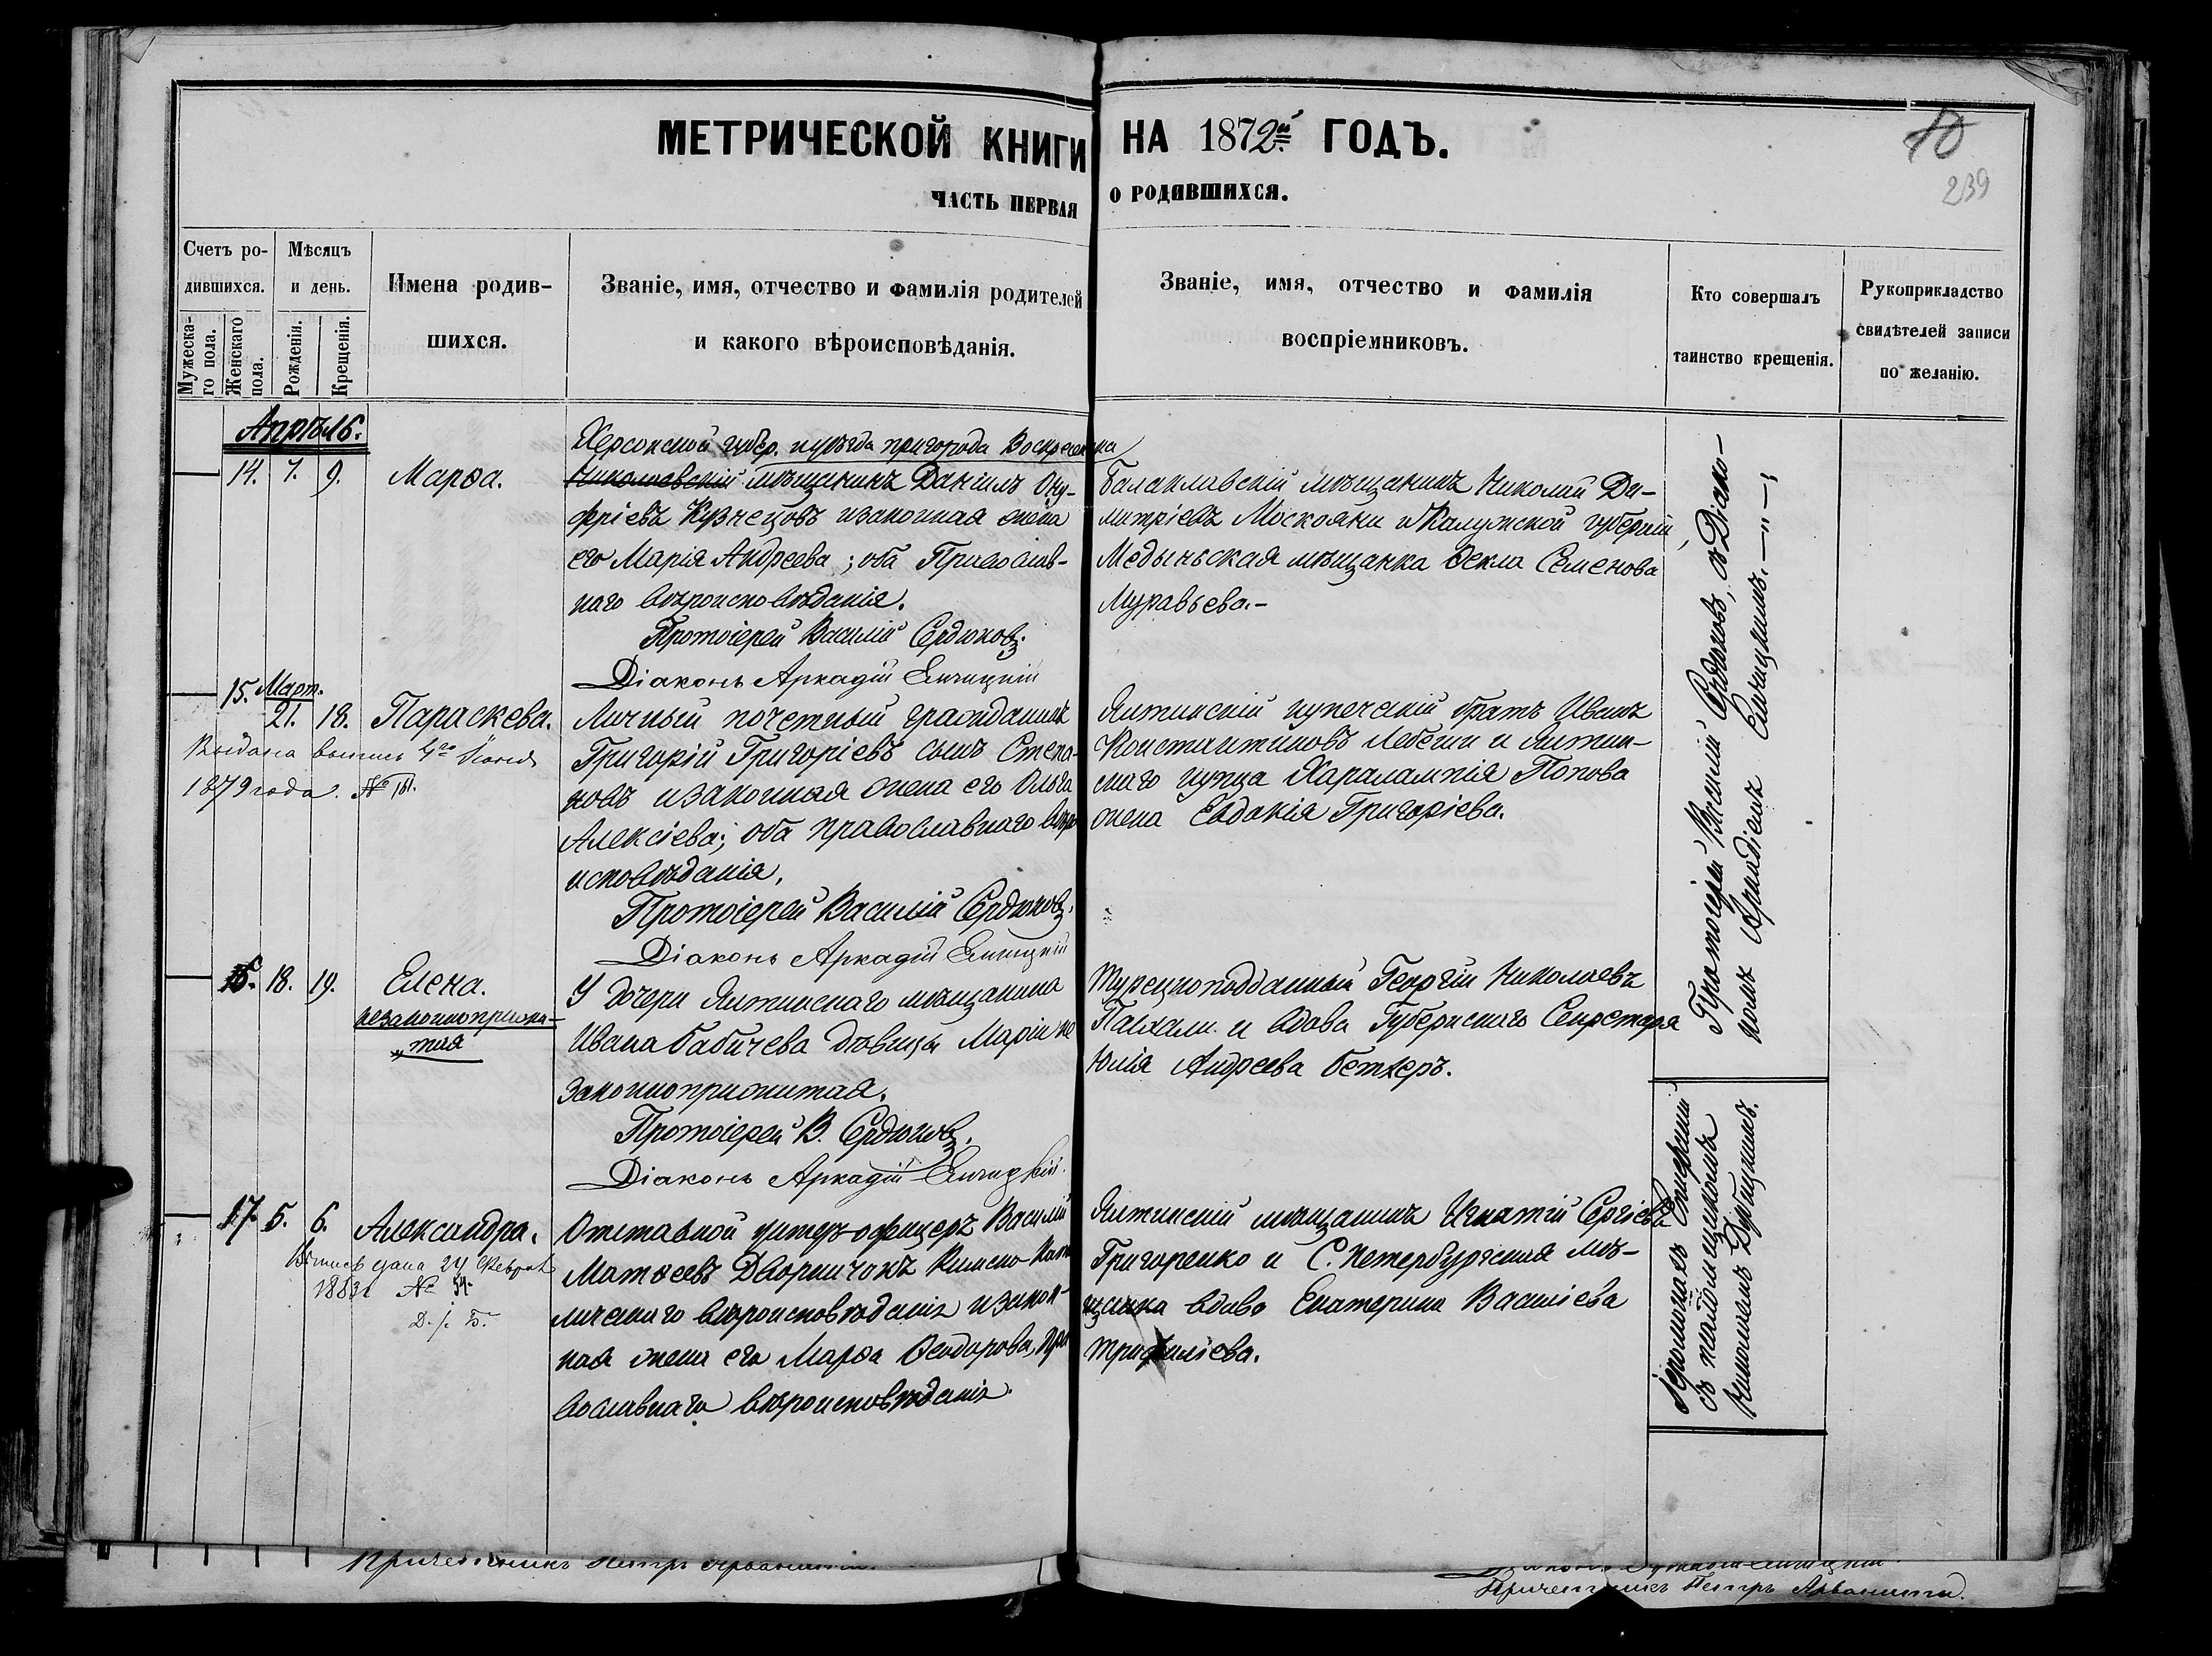 МЕТРИЧЕСКОЙ КНИГИ НА 1872й ГОДЪ.
ЧАСТЬ ПЕРВАЯ О РОДИВШИХСЯ.
10
239
Счетъ ро-
дившихся.
Мужеска-
го пола.
Женскаго
пола.
Мѣсяцъ
и день.
Рожденія.
Крещенія.
Имена родив-
шихся.
Званіе, имя, отчество и фамилія родителей
и какого вѣроисповѣданія.
Званіе, имя, отчество и фамилія
воспріемниковъ.
Кто совершалъ
таинство крещенія.
Рукоприкладство
свидѣтелей записи
по желанію.
Апрѣль.
14. 7. 9. Марѳа.
Херсонской губер. и уѣзда пригорода Воскресенска
Николаевскій мѣщанинъ Даніилъ Ону-
фріевъ Кузнецовъ и законная жена
его Марія Андреева; оба Православ-
наго вѣроисповѣданія.
Протоіерей Василій Сердюковъ.
Діаконъ Аркадій
Балаклавскій мѣщанинъ Николай Ди-
митріевъ Москояни и Калужской губерніи,
Медыньская мѣщанка Ѳекла Семенова
Муравьева.-
15. Март.
21. 18. Параскева.
Выдана выпись 4го Іюня
1879 года. №
Личный почетный гражданинъ
Григорій Григоріевъ сынъ Степа-
новъ и законная жена его Ольга
Алексіева; оба православнаго вѣро
исповѣданія.
Протоіерей Василій Сердюковъ.
Діаконъ Аркадій
Ялтинскій купеческій братъ Иванъ
Константиновъ Лебеши и Ялтин-
скаго купца Харалампія Попова
жена Евдокія Григоріева.
16. 18. 19. Елена.
незаконноприжи-
„тая
У дочери Ялтинскаго мѣщанина
Ивана Бабичева дѣвицы Маріи не
законноприжитая.
Протоіерей В. Сердюковъ.
Діаконъ Аркадій
Турецкоподданный Георгій Николаевъ
Пасхали и вдова Губернскаго Секретаря
Юлія Андреева Беткеръ.
Протоіерей Василій Сердюковъ, съ Діако-
номъ Аркадіемъ
17. 5. 6. Александра.
Выпись дана 24 Февраля
188 №
Отставной унтеръ-офицеръ Василій
Матѳеевъ Дворничокъ Римско-Като
лическаго вѣроисповѣданія и закон-
ная жена его Марѳа Ѳеодорова, пра
вославнаго вѣроисповѣданія.
Ялтинскій мѣщанинъ Игнатій Сергіевъ
Григоренко и С. Петербургская мѣ-
щанка вдова Екатерина Васильева
Трифиліева.
Іеромонахъ
съ
Причетникъ Петръ
Причетникъ Петръ Арванити.